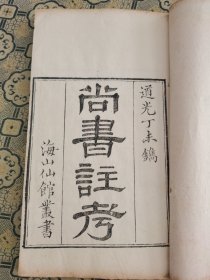 道光丁未鐫
尚書註考
海山仙館叢書